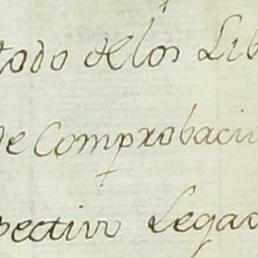 todo delos Lib
de Comprobaciu
pectivo Legad